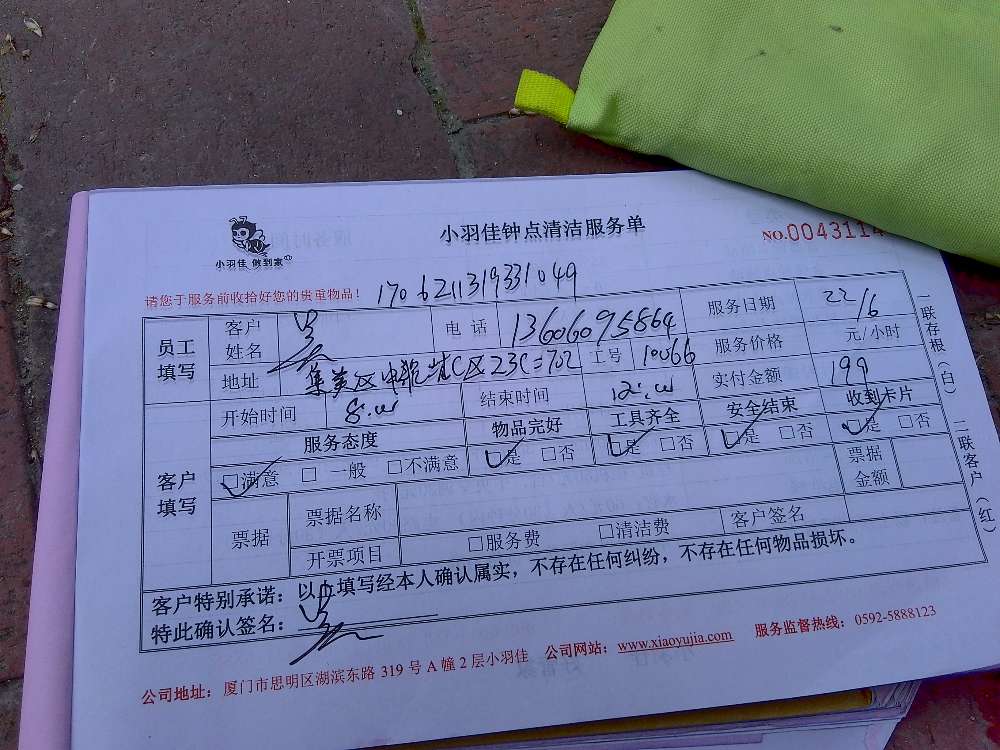 小羽佳 做到家
小羽佳钟点清洁服务单
NO.0043114
请您于服务前收拾好您的贵重物品！ 1706211319331049
员工填写 客户姓名 电话 13606095864 服务日期 22/6
地址 集美区 C区23C=702 工号 10066 服务价格 元/小时
开始时间 8: 结束时间 12: 实付金额 199
客户填写 服务态度 物品完好 工具齐全 安全结束 收到卡片
□满意 □一般 □不满意 □是 □否 □是 □否 □是 □否 □是 □否
票据 票据名称 票据金额
开票项目 □服务费 □清洁费 客户签名
客户特别承诺：以上填写经本人确认属实，不存在任何纠纷，不存在任何物品损坏。
特此确认签名：
公司地址：厦门市思明区湖滨东路319号A幢2层小羽佳 公司网站：www.xiaoyujia.com 服务监督热线：0592-5888123
一联存根（白） 二联客户（红）